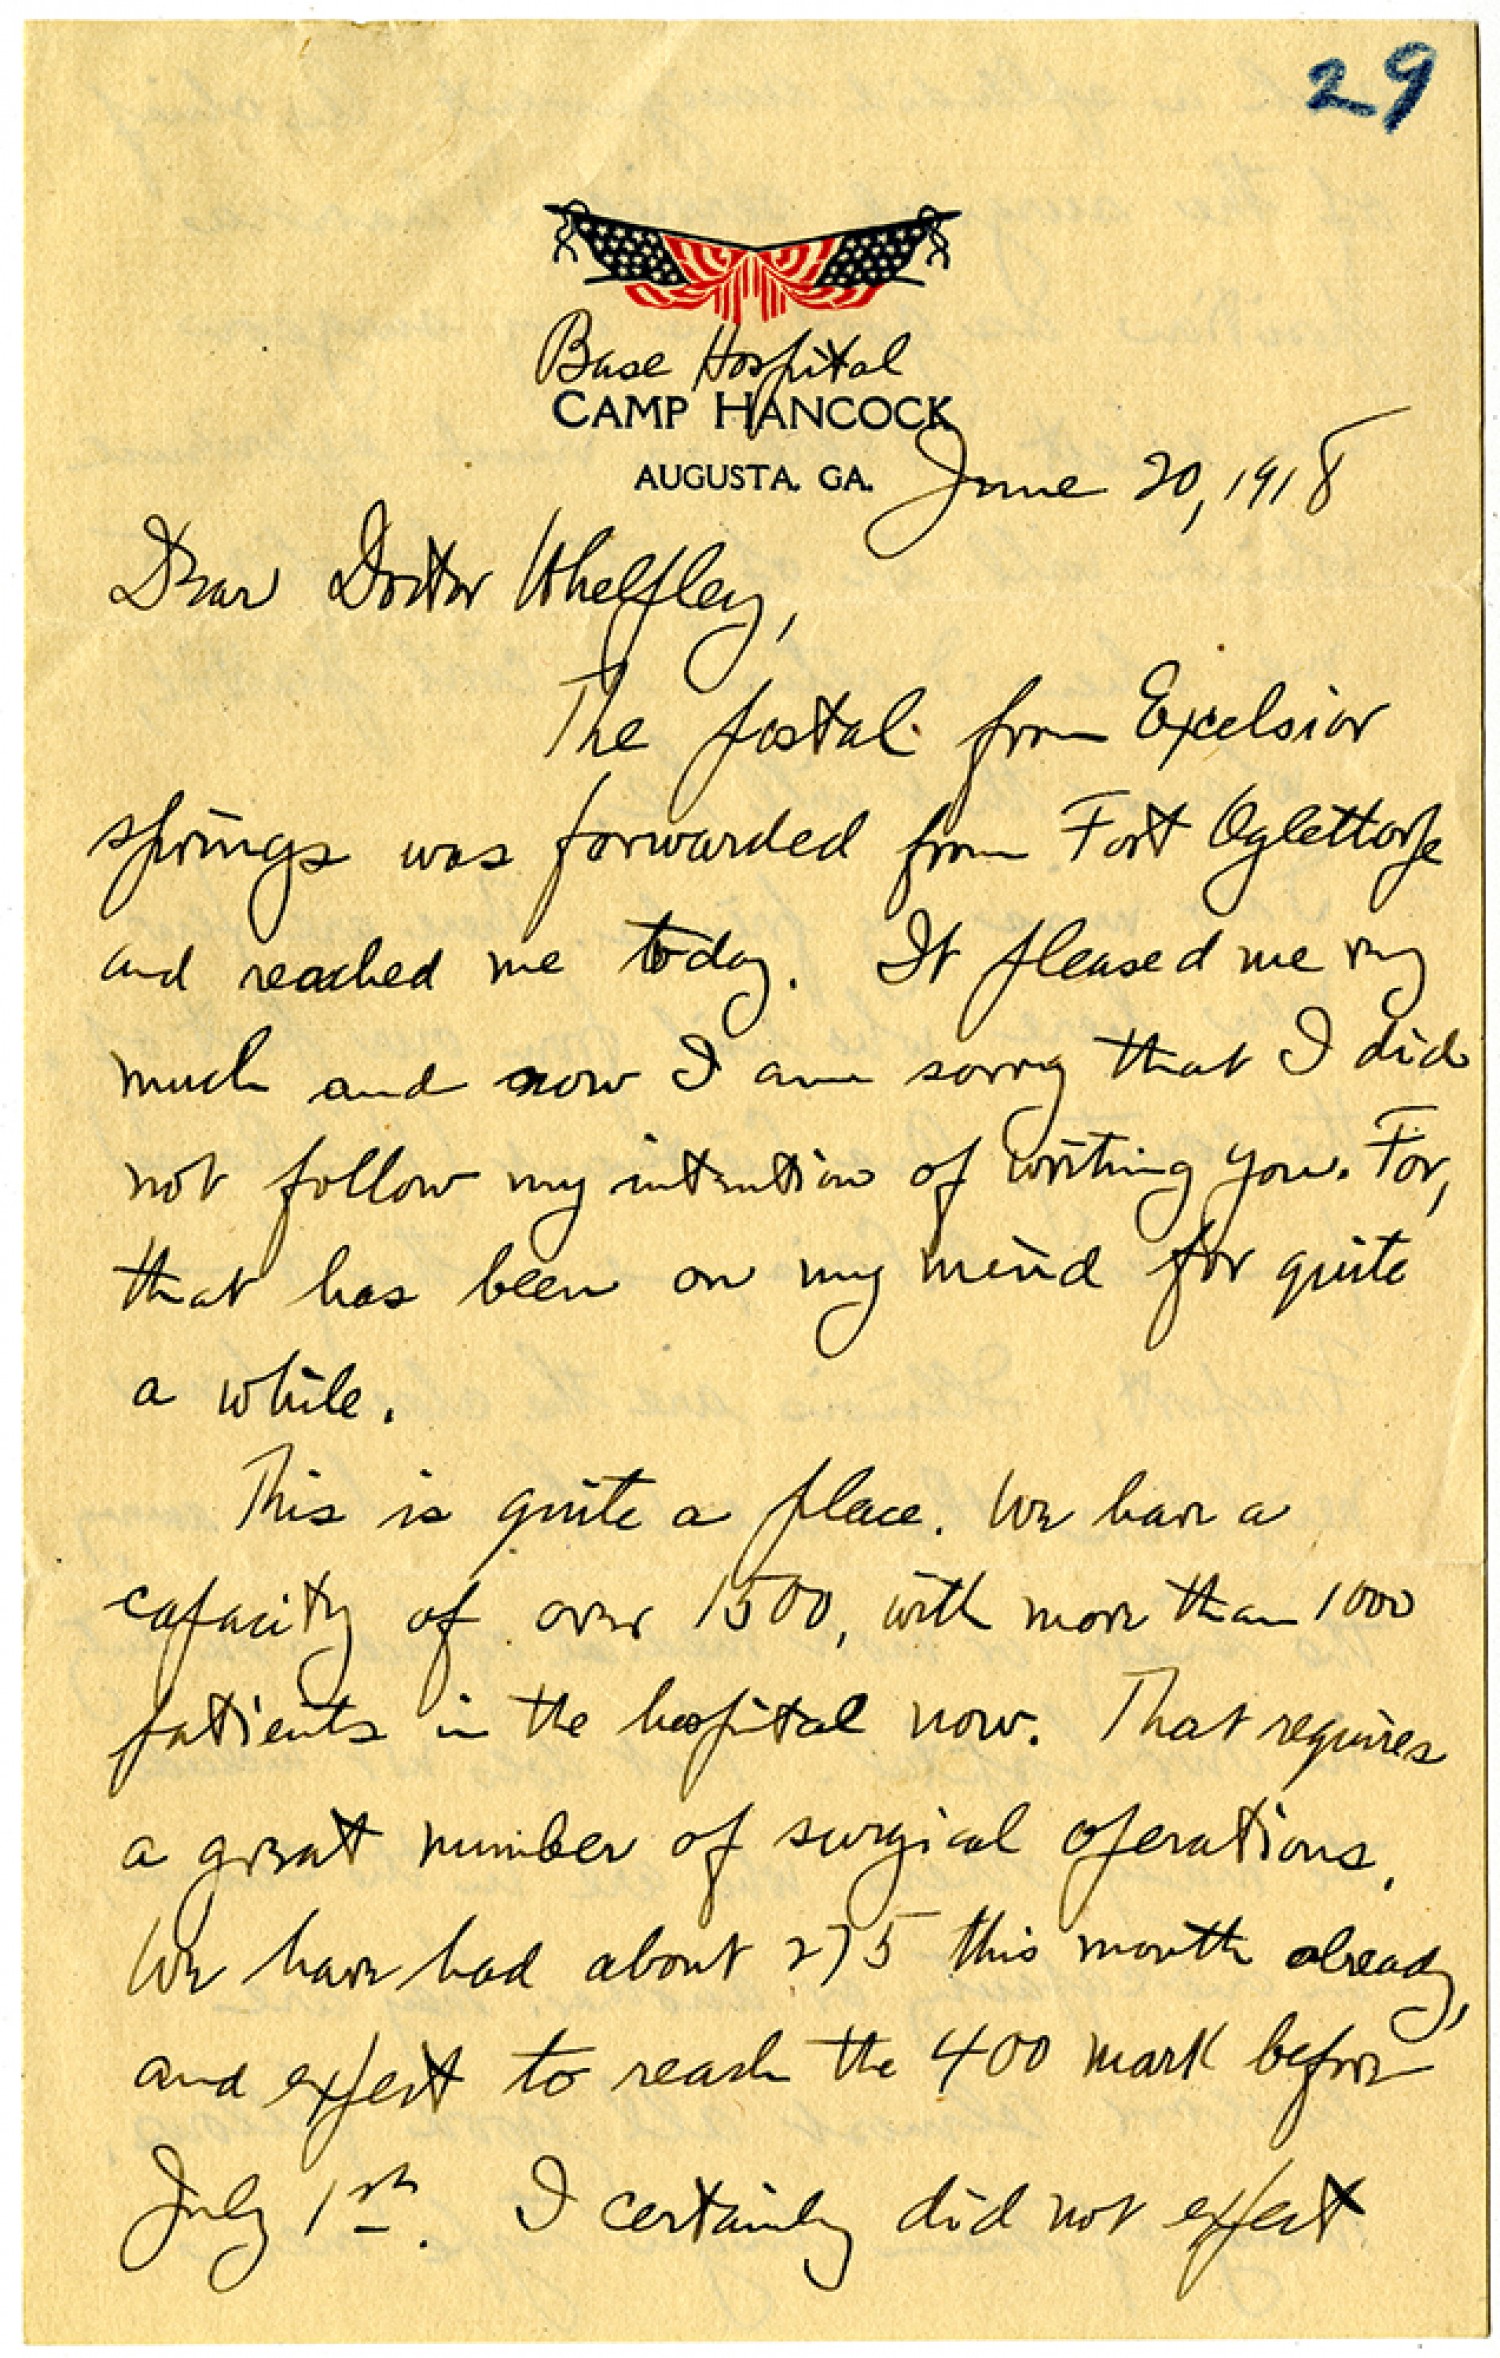 29
Base Hospital
CAMP HANCOCK
AUGUSTA, GA.
June 20, 1918
Dear Doctor Whelpley,
The postal from Excelsior
springs was forwarded from Fort Oglettorpe
and reached me today. It pleased me very
much and now I am sorry that I did
not follow my intention of writing you. For,
that has been on my mind for quite
a while.
This is quite a place. We have a
capacity of over 1500, with more than 1000
patients in the hospital now. That requires
a great number of surgical operations.
We have had about 275 this month already,
and expect to reach the 400 mark before
July 1st. I certainly did not expect